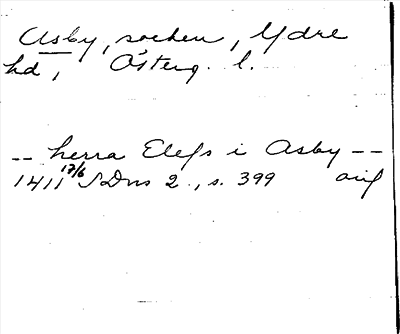 Asby, socken, Ydre
hd, Österg. l.
-- herra Elefs i Asby --
1411 17/6 SDns 2, s. 399 avif